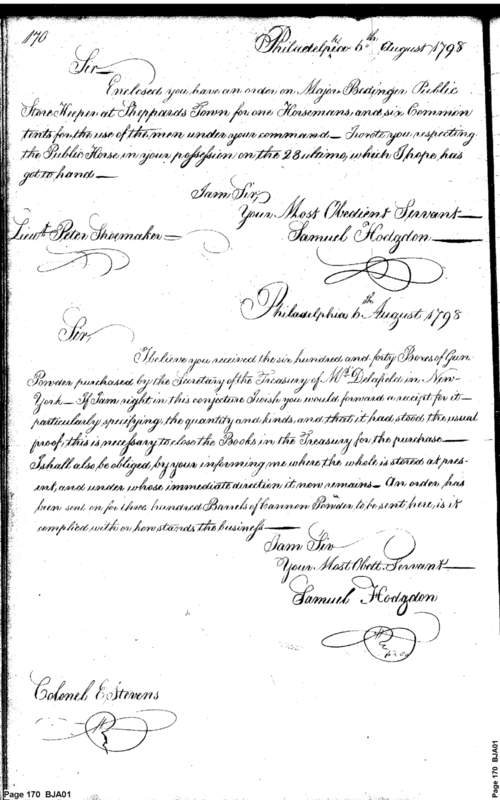 170
Philadelphia 6th August 1798
Sir
Enclosed you have an order on Major Bedinger Public
Store Keeper at Sheppards Town for one Horsemans, and six Common
tents for the use of the men under your command — I wrote you respecting
the Public Horse, in your possession on the 28 ultimo, which I hope, has
got to hand —
I am Sir,
Your Most Obedient Servant
Samuel Hodgdon
Lieut. Peter Shoemaker
Philadelphia 6th August, 1798
Sir,
I believe you received the six hundred and forty Boxes of Gun
Powder purchased by the Secretary of the Treasury of Mr. Delafield in New-
York — If I am right in this conjecture I wish you would forward a receipt for it —
particularly specifying the quantity and kinds, and that it had stood the usual
proof, this is necessary to close the Books in the Treasury for the purchase —
I shall also be obliged, by your informing me where the whole is stored at pres-
ent, and under whose immediate direction it now remains — An order, has
been sent on for three hundred Barrels of Cannon Powder to be sent here, is it
complied with or how stands the business —
I am Sir
Your Most Obedt. Servant
Samuel Hodgdon
Colonel E. Stevens
Page 170 BJA01
Page 170 BJA01